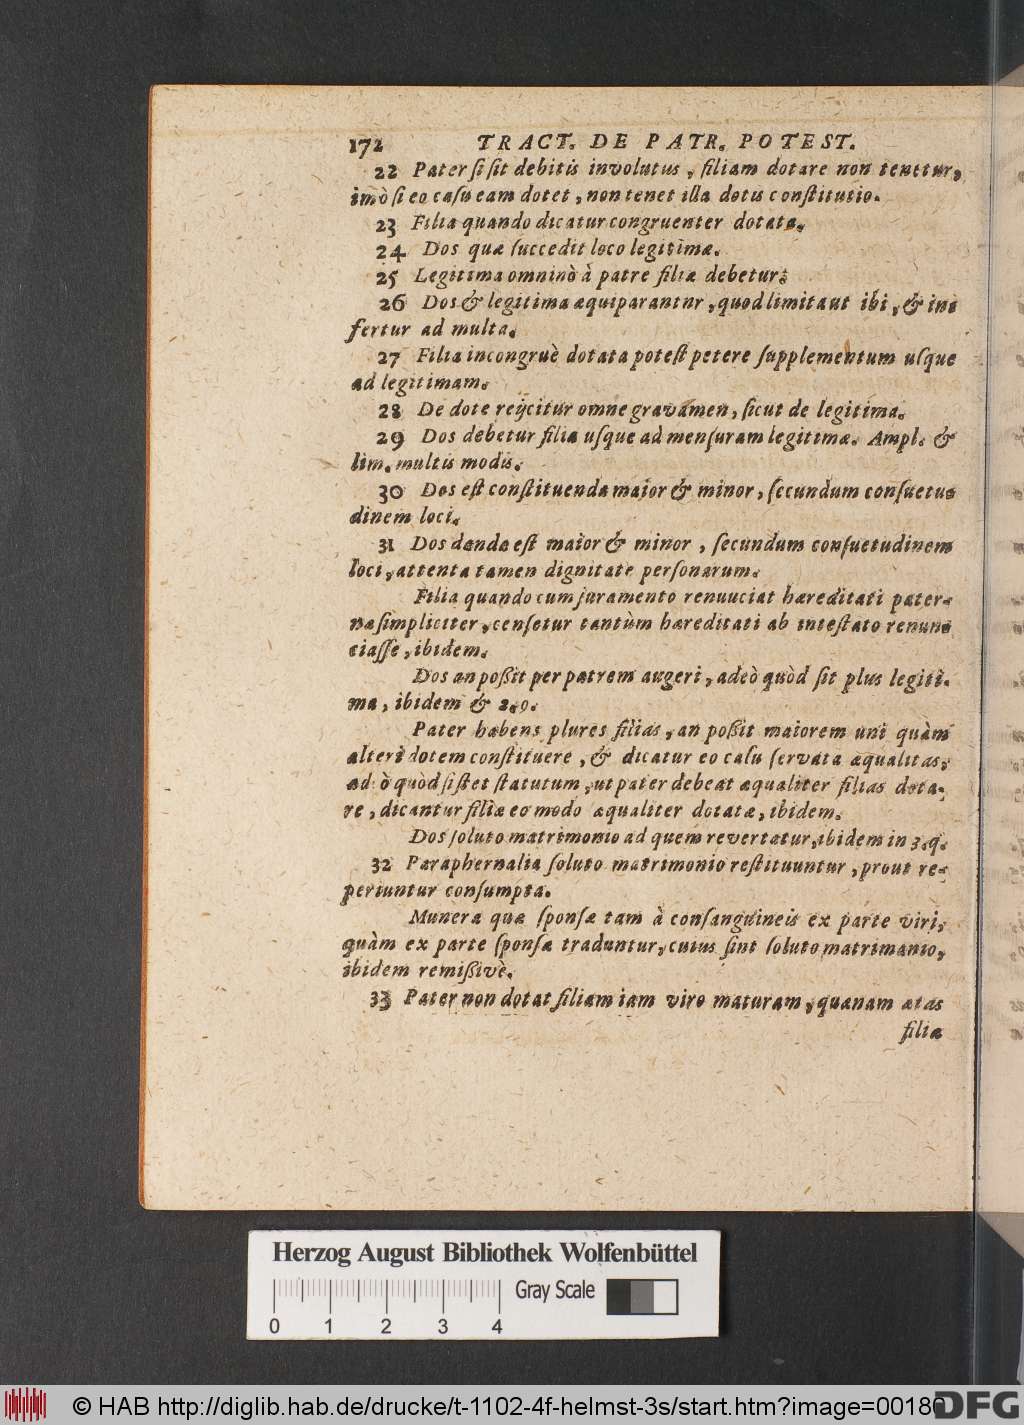 172 TRACT. DE PATR. POTEST.
22 Pater ſi ſit debitis involutus, filiam dotare non tenetur,
imò ſi eo caſu eam dotet, non tenet illa dotis conſtitutio.
23 Filia quando dicatur congruenter dotata.
24 Dos quæ ſuccedit loco legitimæ.
25 Legitima omninò à patre filiæ debetur.
26 Dos & legitima æquiparantur, quod limitant ibi, & in-
fertur ad multa.
27 Filia incongruè dotata poteſt petere ſupplementum uſque
ad legitimam.
28 De dote reijcitur omne gravamen, ſicut de legitima.
29 Dos debetur filiæ uſque ad menſuram legitimæ. Ampl. &
lim. multis modis.
30 Dos eſt conſtituenda major & minor, ſecundum conſuetu-
dinem loci.
31 Dos danda eſt maior & minor, ſecundum conſuetudinem
loci, attenta tamen dignitate perſonarum.
Filia quando cum juramento renunciat hæreditati pater-
næ ſimpliciter, cenſetur tantùm hæreditati ab inteſtato renun-
ciaſſe, ibidem.
Dos an poßit per patrem augeri, adeò quòd ſit plus legiti-
ma, ibidem & 2.9.
Pater habens plures filias, an poßit maiorem uni quàm
alteri dotem conſtituere, & dicatur eo caſu ſervata æqualitas,
ad ò quòd ſi ſtet ſtatutum, ut pater debeat æqualiter filias dota-
re, dicantur filiæ eo modo æqualiter dotatæ, ibidem.
Dos ſoluto matrimonio ad quem revertatur, ibidem in 3. q.
32 Paraphernalia ſoluto matrimonio reſtituuntur, prout re-
periuntur conſumpta.
Munera quæ ſponſæ tam à conſanguineis ex parte viri,
quàm ex parte ſponſæ traduntur, cuius ſint ſoluto matrimonio,
ibidem remißivè.
33 Pater non dotat filiam iam viro maturam, quænam ætas
filiæ
Herzog August Bibliothek Wolfenbüttel
Gray Scale
0 1 2 3 4
© HAB http://diglib.hab.de/drucke/t-1102-4f-helmst-3s/start.htm?image=00180
DFG